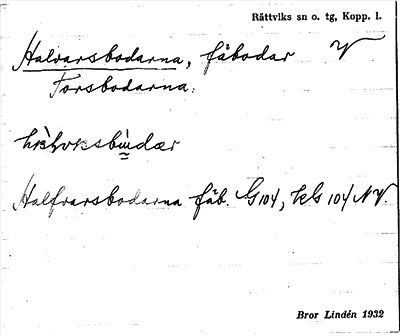 Rättviks sn o. tg, Kopp. l.
Halvarsbodarna, fäbodar V
Torsbodarna.
Halfvarsbodarna fäb. G104, kbl 104 NV.
Bror Lindén 1932